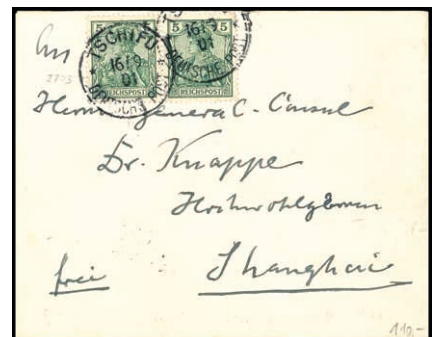 An
TSCHIFU
16/9
01
DEUTSCHE POST
5 5
REICHSPOST
16/9
01
DEUTSCHE POST
5 5
REICHSPOST
2703
Herrn General-Consul
Dr. Knappe
Hochwohlgeboren
frei Shanghai
110,-